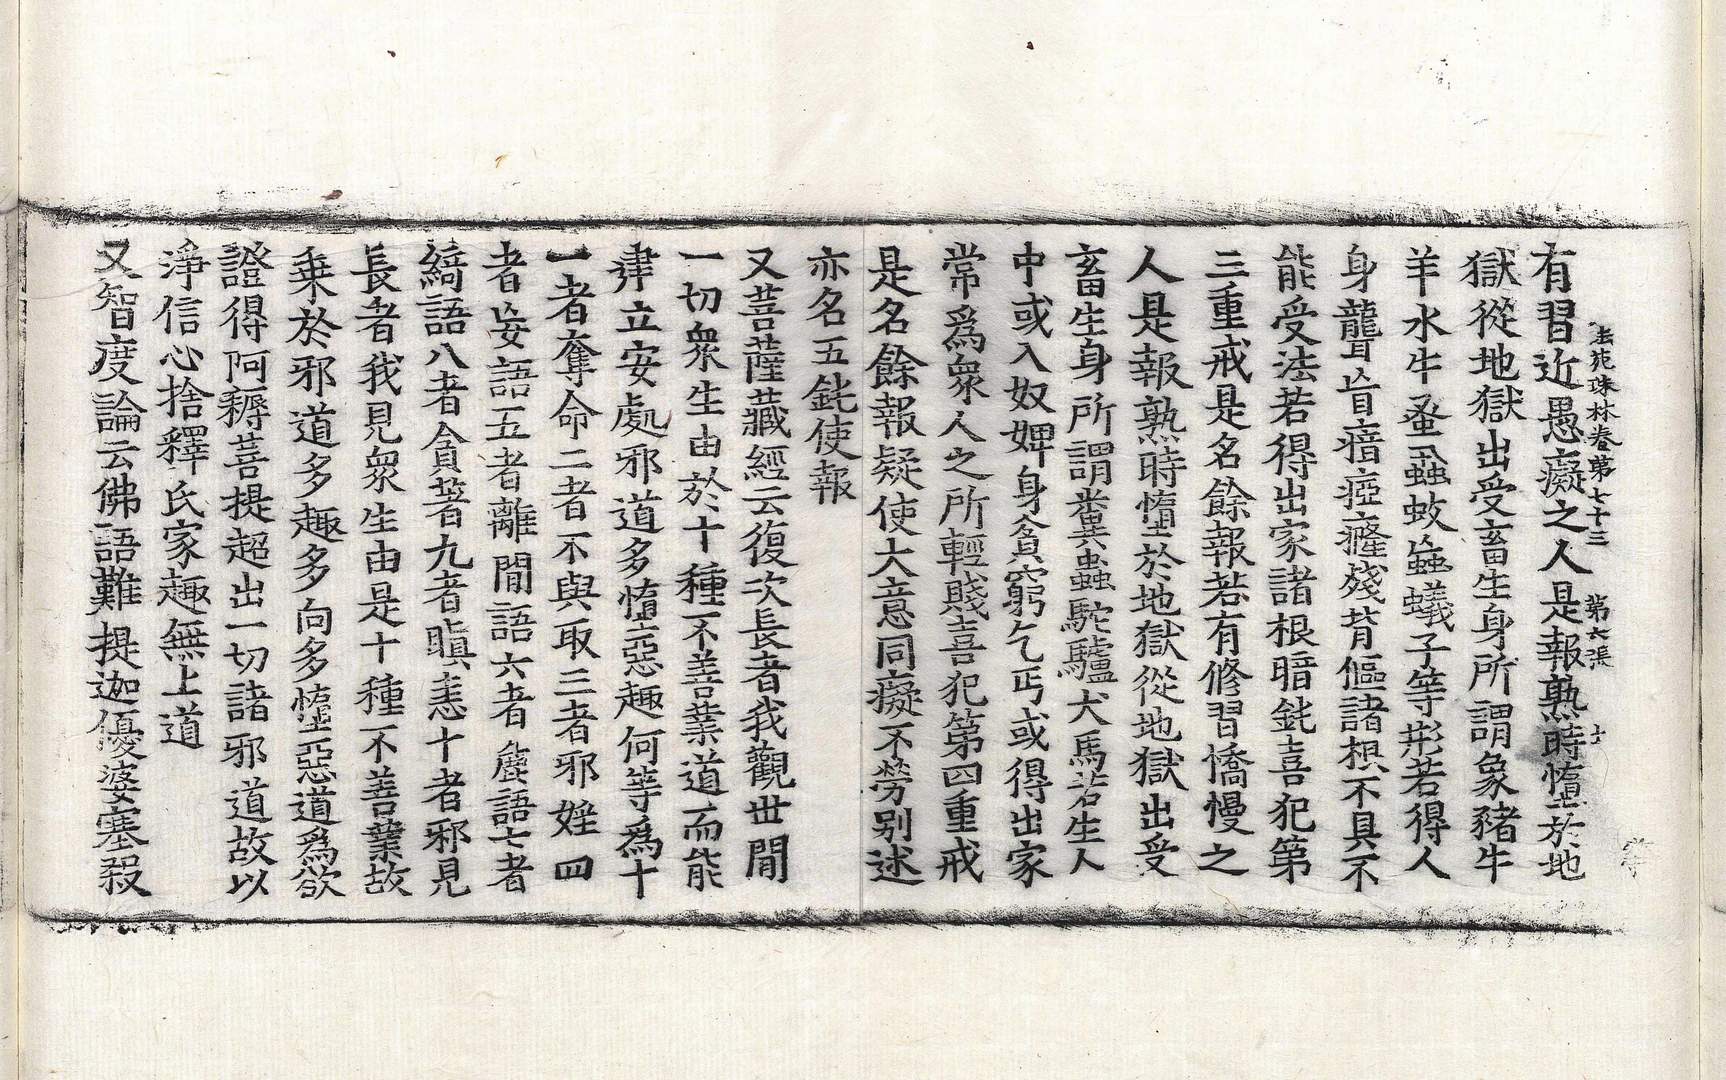 法苑珠林卷第七十三 第六張
有習近愚癡之人是報熟時墮於地
獄從地獄出受畜生身所謂象豬牛
羊水牛蚤蝨蚊䖟蟻子等形若得人
身聾盲瘖瘂癃殘背傴諸根不具不
能受法若得出家諸根暗鈍喜犯第
三重戒是名餘報若有修習憍慢之
人是報熟時墮於地獄從地獄出受
畜生身所謂糞蟲駝驢犬馬若生人
中或入奴婢身貧窮乞丐或得出家
常爲衆人之所輕賤喜犯第四重戒
是名餘報疑使大意同癡不勞別述
亦名五鈍使報
又菩薩藏經云復次長者我觀世間
一切衆生由於十種不善業道而能
建立安處邪道多墮惡趣何等爲十
一者奪命二者不與取三者邪婬四
者妄語五者離間語六者麁語七者
綺語八者貪著九者瞋恚十者邪見
長者我見衆生由是十種不善業故
乗於邪道多趣多向多墮惡道爲欲
證得阿耨菩提超出一切諸邪道故以
淨信心捨釋氏家趣無上道
又智度論云佛語難提迦優婆塞殺